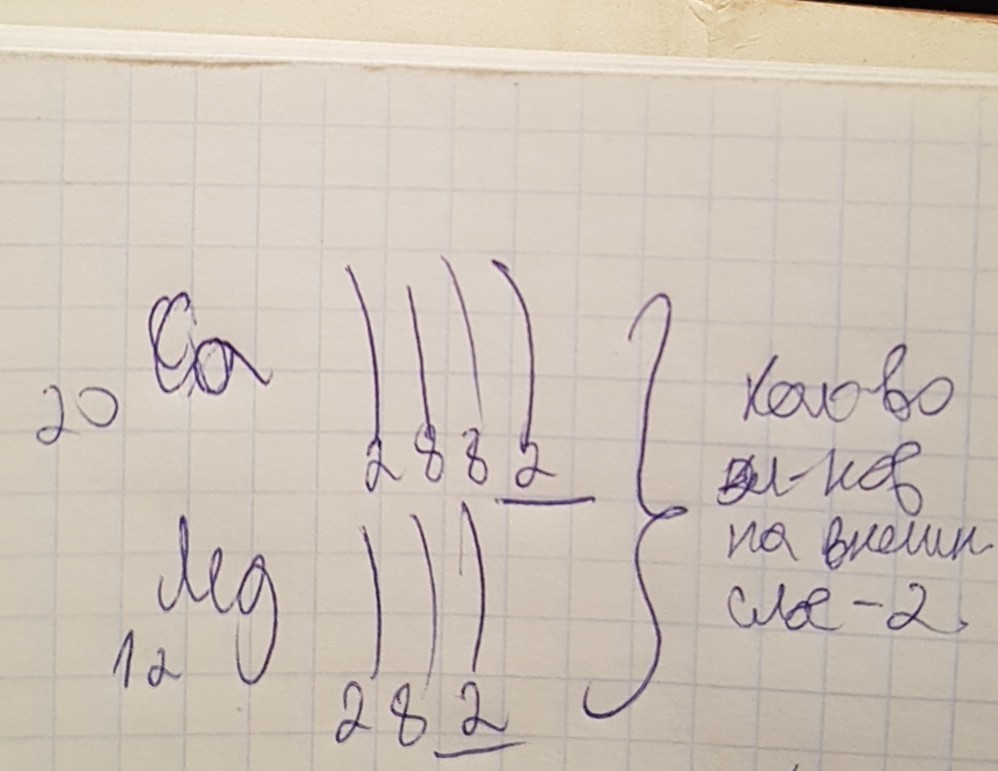 20 Ca
2 8 8 2
Mg
12
2 8 2
кол-во
эл-нов
на внешн.
слое - 2.